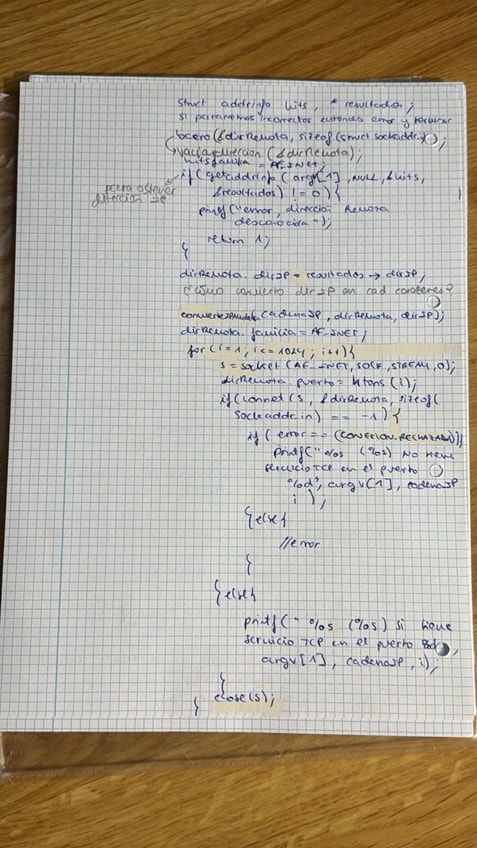 struct addrinfo hits, * resultados;
si parametros incorrectos entonces error y terminar
bcero (&dirRemota, sizeof(struct sockaddr
(vaciadireccion (&dirRemota);
hits.familia = AF_INET;
if (getaddrinfo (argv[1], NULL, &hits,
para obtener
dirección IP
&resultados) != 0) {
printf("error, dirección Remota
desconocida");
return 1;
}
dirRemota. dirIP = resultados → dirIP;
¿cómo convierto dir IP en cad caracteres?
(cadenaIP, dirRemota, dirIP);
dirRemota. familia = AF_INET;
for (i=1; i<=1024; i++){
s = socket (AF_INET, SOCK_STREAM, 0);
dirRemota. puerto = htons (i);
if (connet (s, &dirRemota, sizeof(
sockaddr_in) == -1) {
if ( error == (CONEXION_RECHAZADA)){
printf(" %s (%s) No tiene
servicio TCP en el puerto
%d", argv[1], cadenaIP
i );
}else{
//error
}
}else{
printf(" %s (%s) si tiene
servicio TCP en el puerto %d
argv[1], cadenaIP, i);
}
close(s);
}